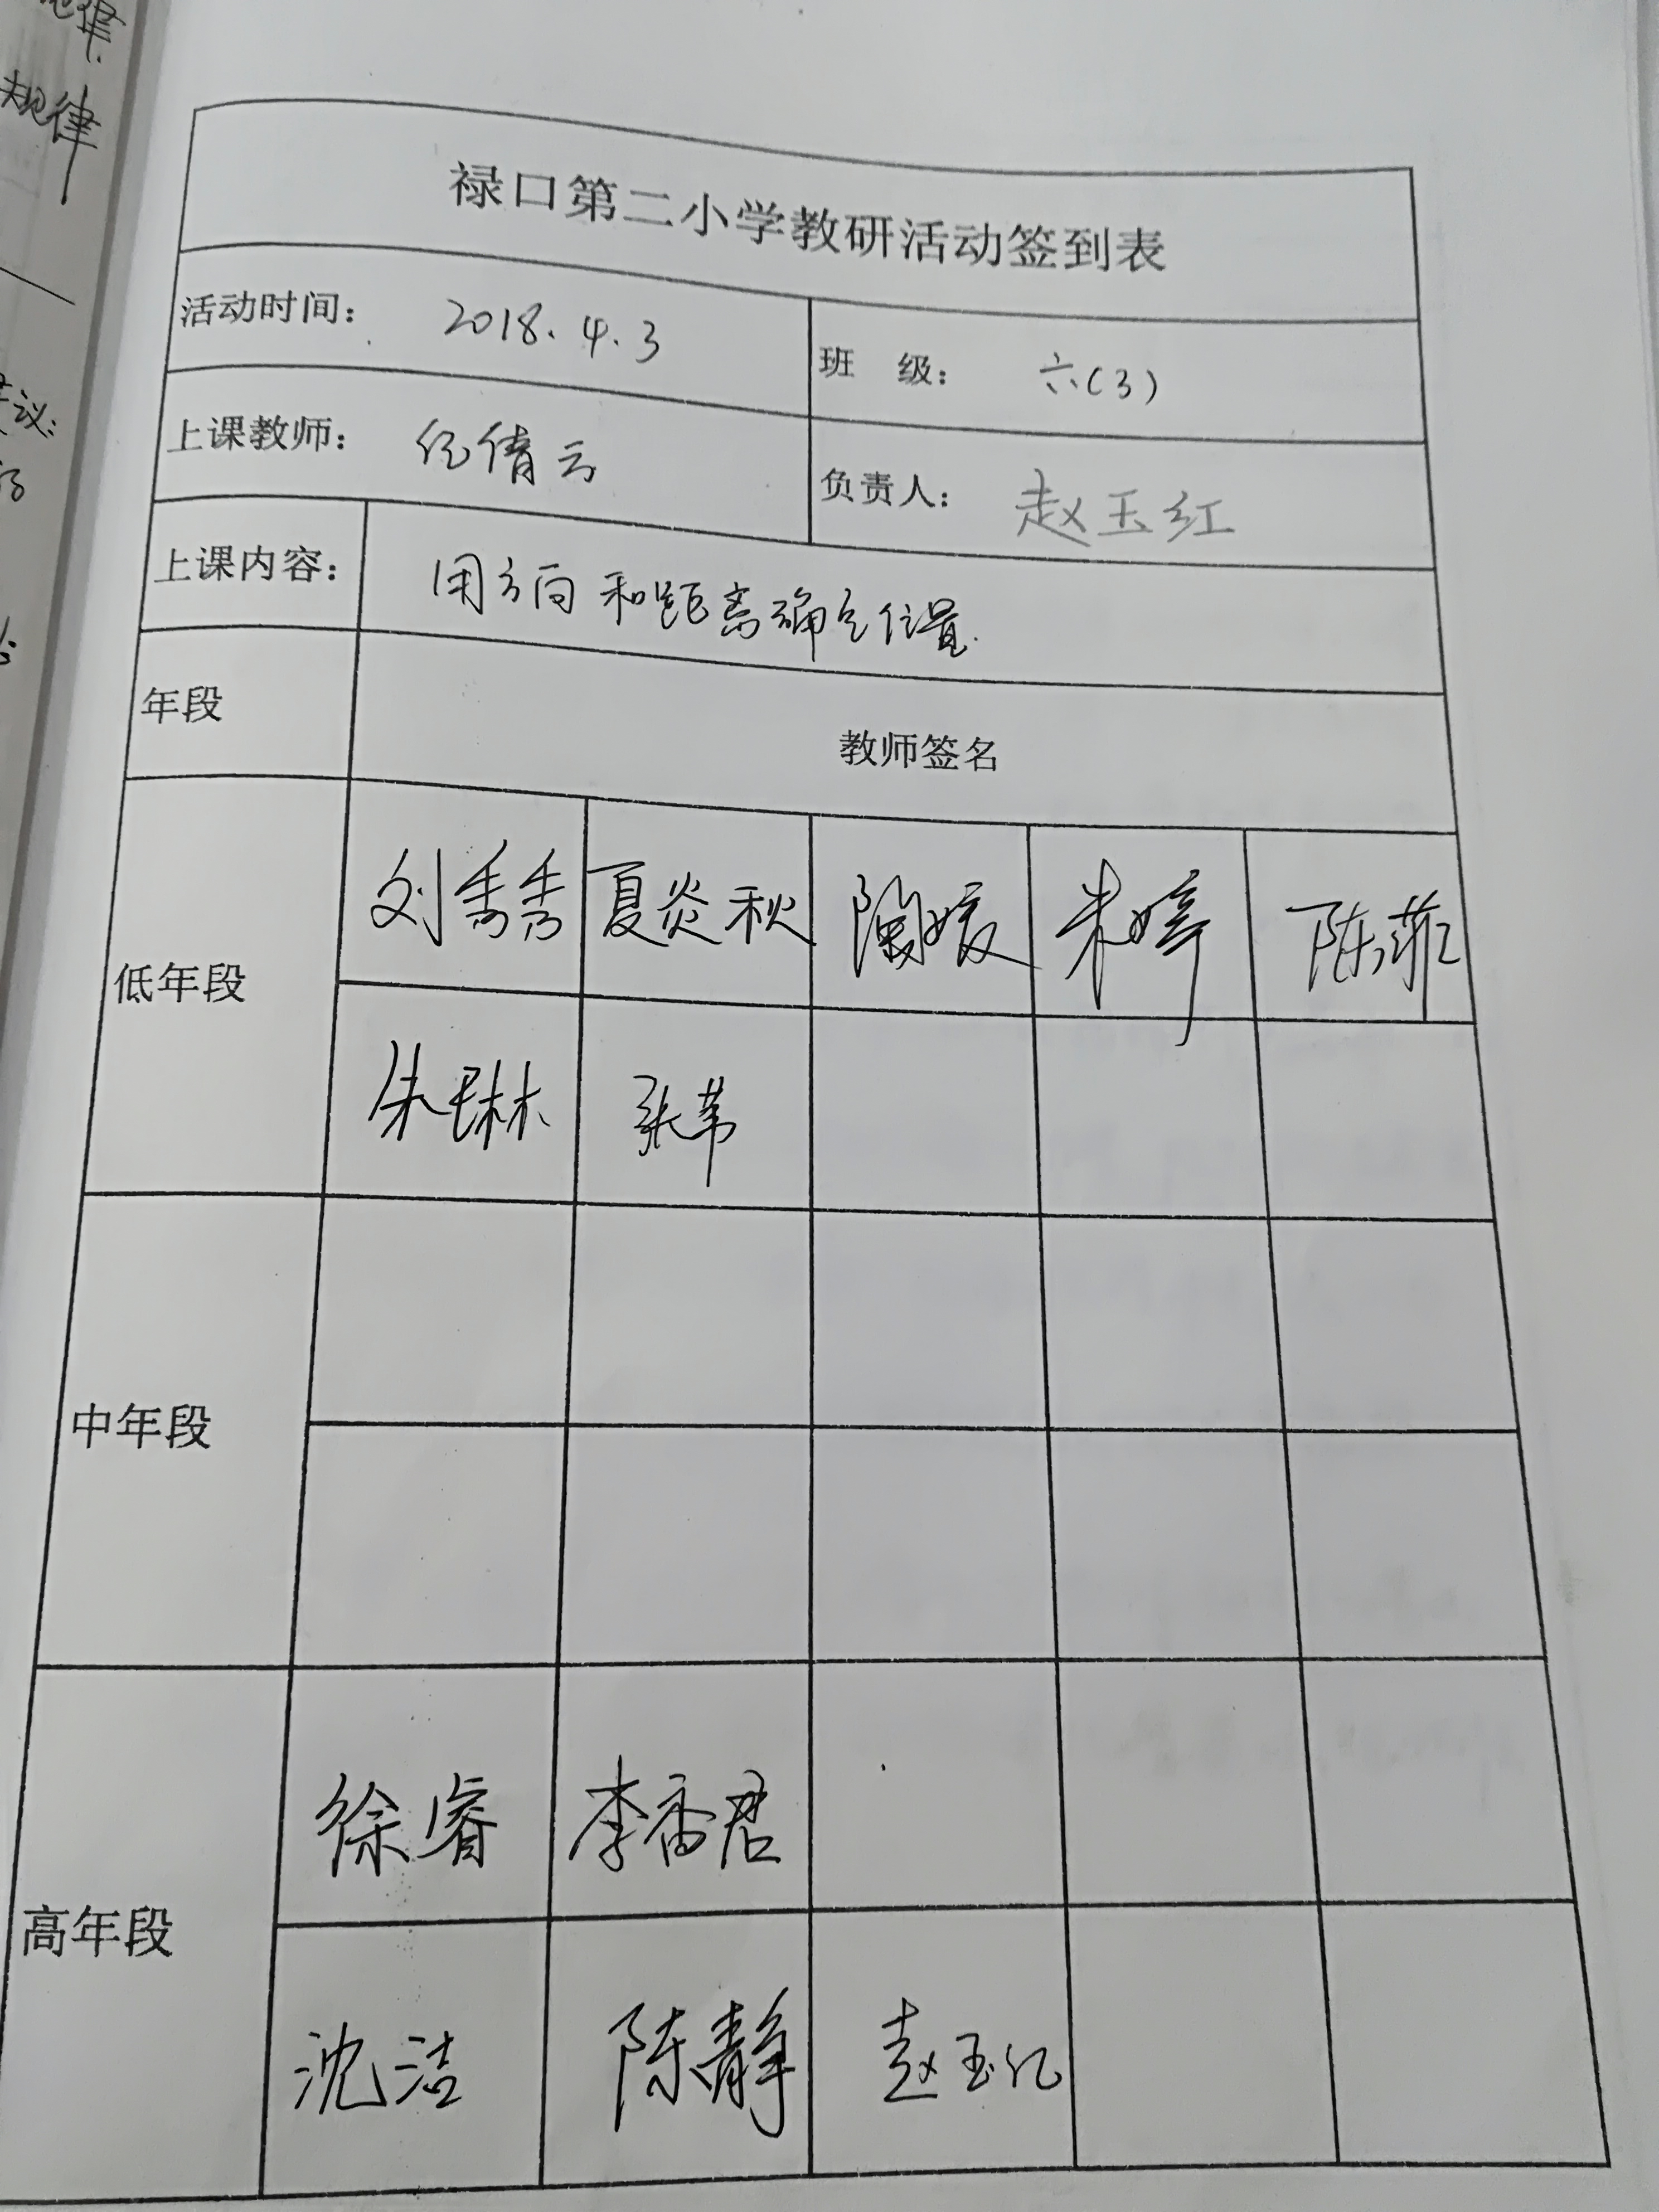 规律
议:
禄口第二小学教研活动签到表
活动时间: 2018.4.3 班 级: 六(3)
上课教师: 倩云 负责人: 赵玉红
上课内容: 用方向和距离确定位置.
年段 教师签名
低年段 刘秀秀 夏炎秋 陶媛 朱婷 陈菲
朱琳 张苇
中年段
高年段 徐睿 李香君
沈洁 陈静 赵玉红